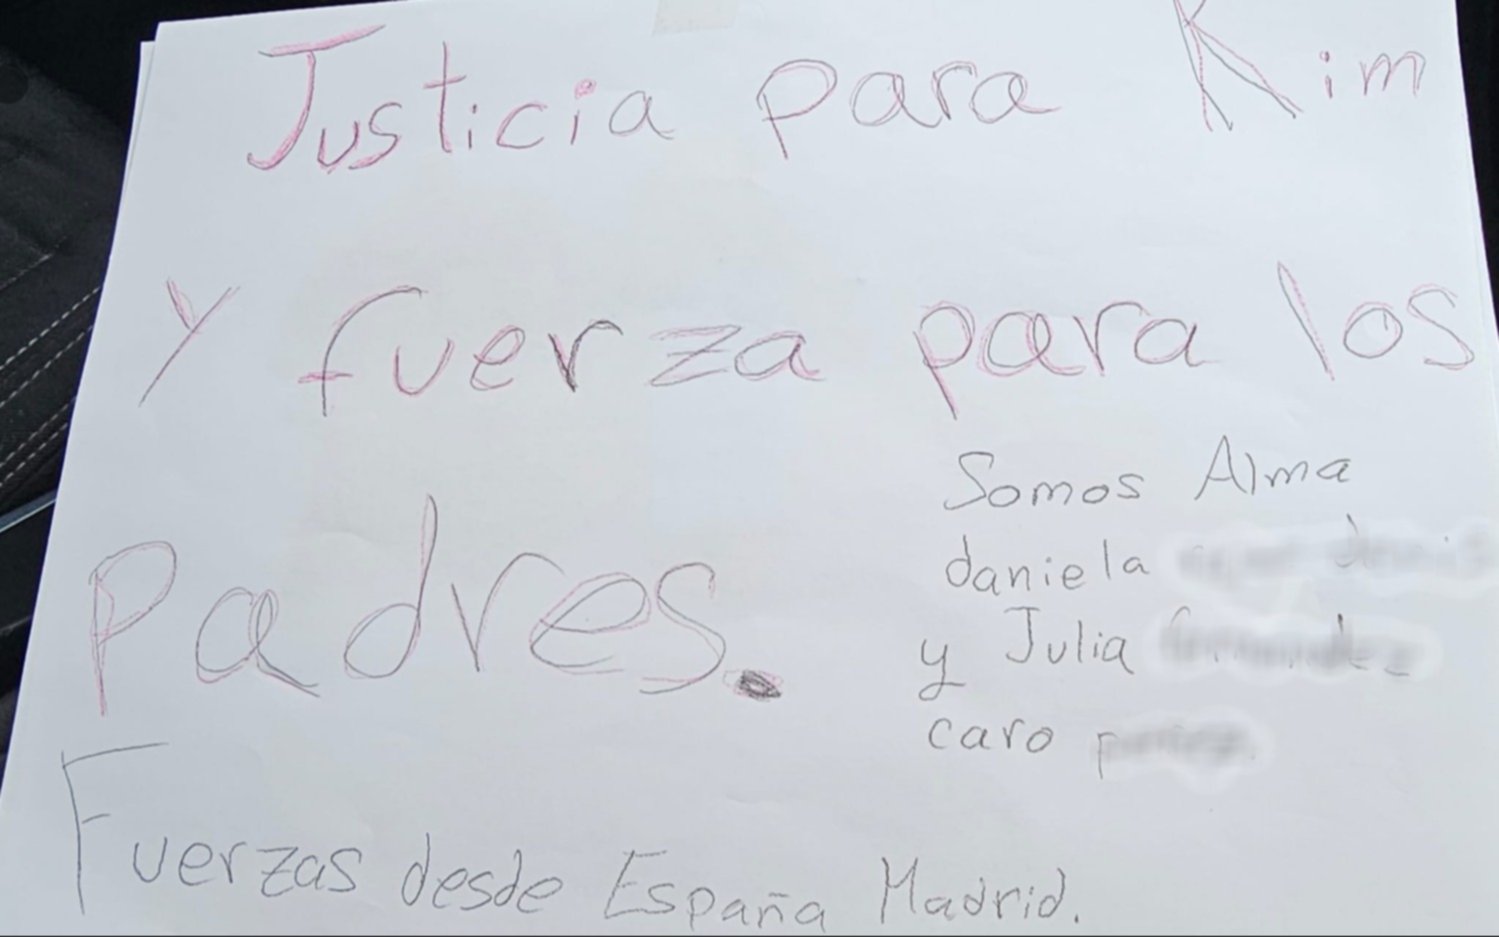 Justicia para Kim
Y fuerza para los
Padres.
Somos Alma
daniela
y Julia
caro
Fuerzas desde España Madrid.